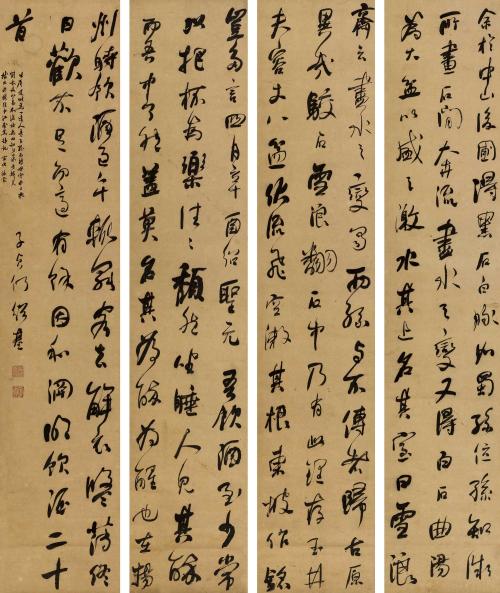 余於中山後圃得黑石白脉如蜀孫位孫知微
所畫石間奔流畫水之變又得白石曲陽
為大盆以盛之激水其上名其室曰雪浪
齋云畫水之變蜀兩孫与不傳者歸古原
異哉駁石雪浪翻石中乃有此理存玉井
夫容丈八盆伏流飛空漱其根東坡作銘
豈多言四月辛酉紹聖元 吾飲酒至少常
以把杯為樂往々頹然坐睡人見其醉
而吾中了然蓋莫名其為醉為醒也在揚
州時飲酒過午輒罷客去解衣盤礴終
日歡不足而適有餘因和淵明飲酒二十
首
何紹基